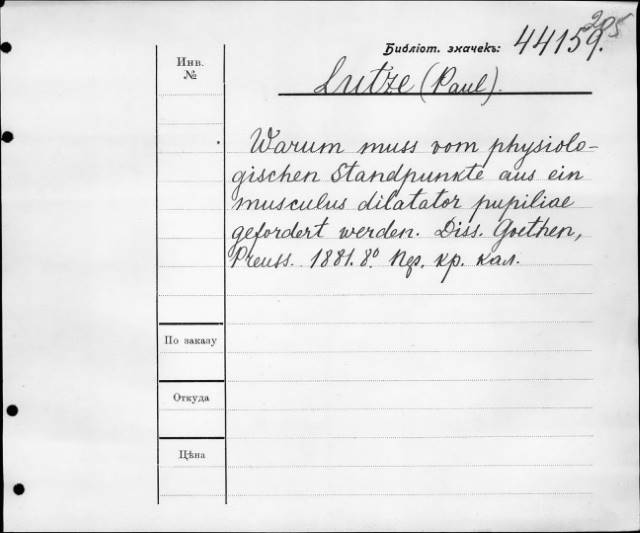 205
Библіот. значекъ: 44159.
Инв.
№
Lutze (Paul).
Warum muss vom physiolo-
gischen Standpunkte aus ein
musculus dilatator pupiliae
gefordert werden. Diss. Goethen,
Preuss. 1881. 8° Пер. кр. кал.
По заказу
Откуда
Цѣна